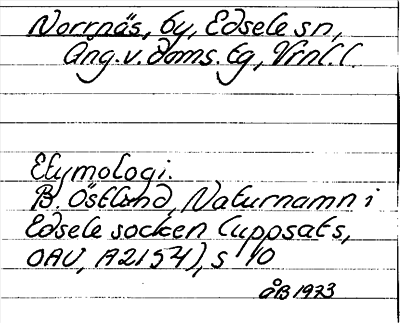 Norrnäs, by, Edsele sn,
Ång. v. doms. tg, Vrnl. l.
Etymologi.
B. Östlund, Naturnamn i
Edsele socken (uppsats,
OAU, A2154), s 10
ÅB 1973